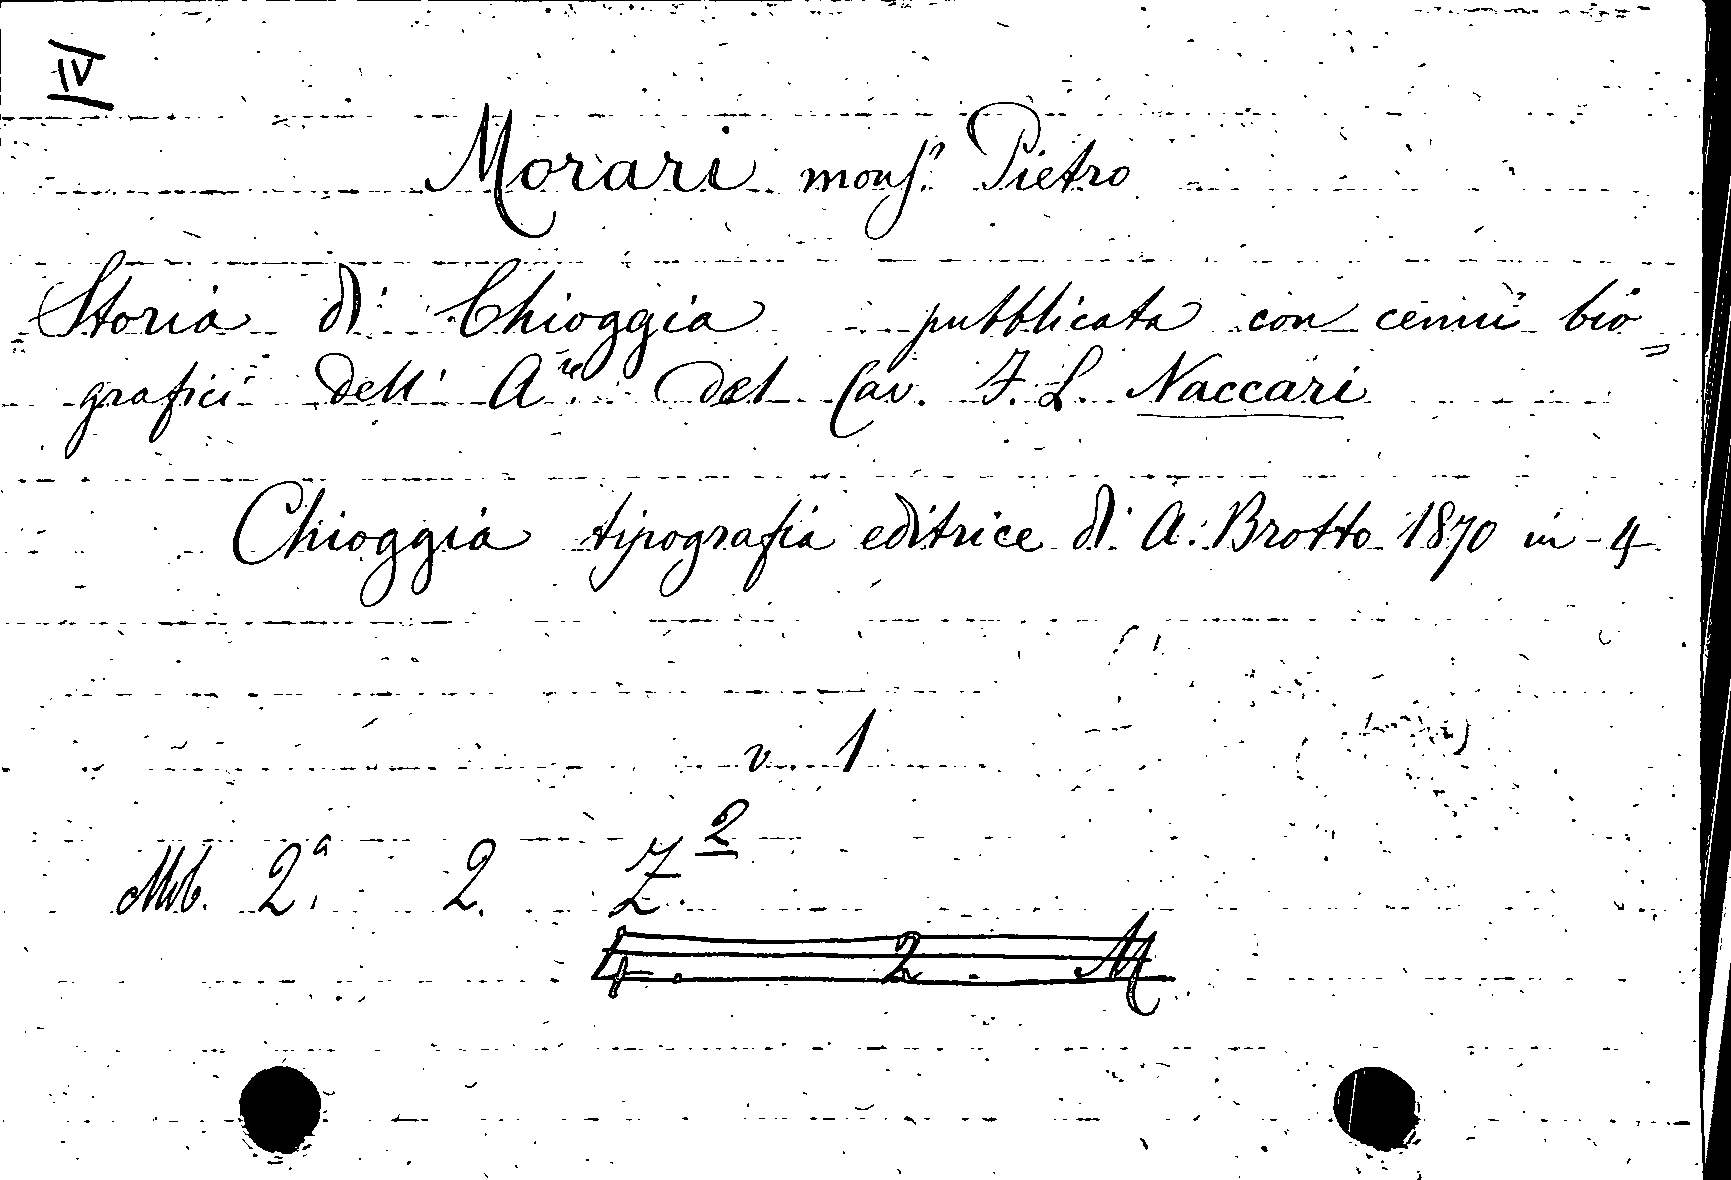 IV
Morari monsʳ Pietro
Storia di Chioggia pubblicata con cenni bio=
grafici dell' Aʳᵉ del Cav. F. L. Naccari
Chioggia tipografia editrice di A. Brotto 1870 in-4
v. 1
Mb. 2.ᵃ 2. Z.²
4. 2. M